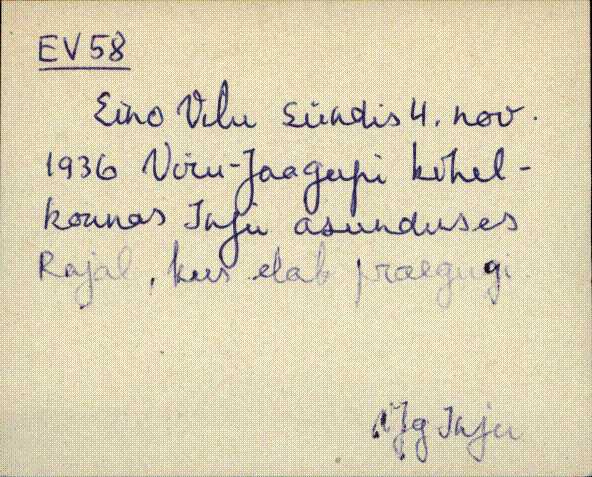 EV 58
Eino Velu sündis 4. nov.
1936 Viru-Jaagupi kihel-
konnas Inju asunduses
Rajal, kus elab praegugi
VJg Inju